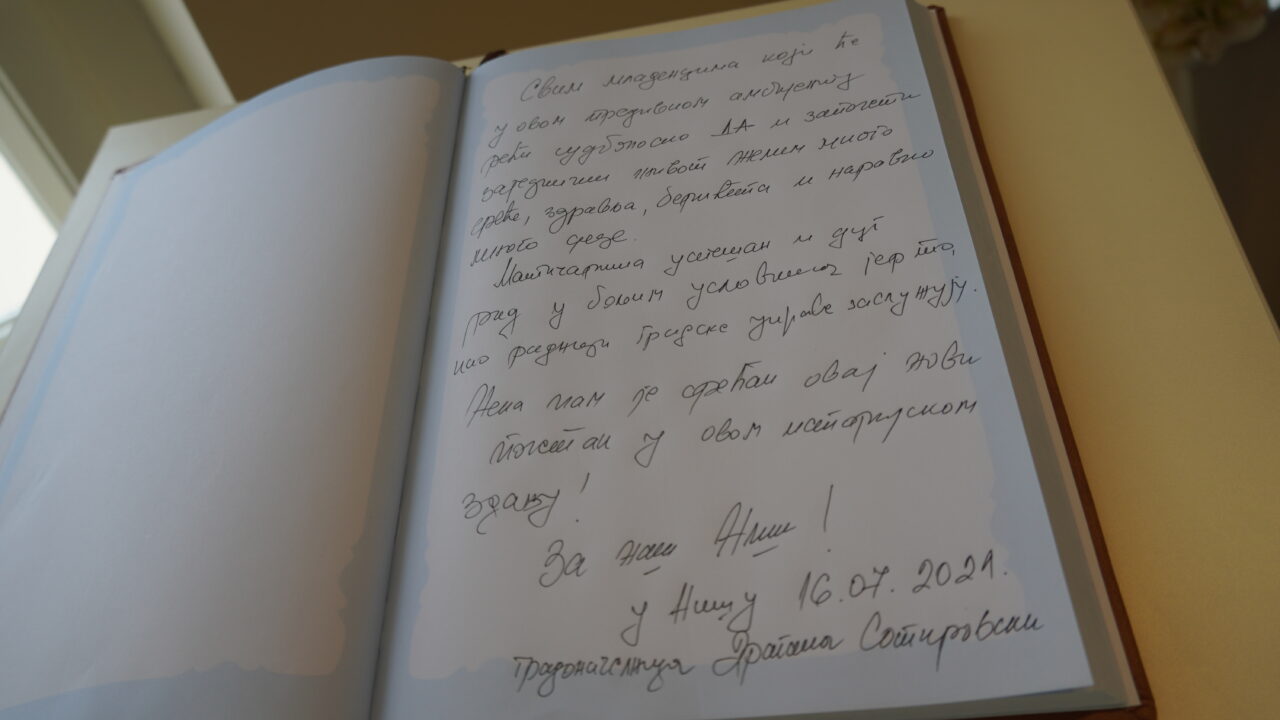 Свим младенцима који ће
у овом предивном амбијенту
рећи судбоносно ДА и започети
заједнички живот желим много
среће, здравља, берићета и наравно
много деце.
Матичарима успешан и дуг
рад у бољим условима јер то,
као радници Градске управе заслужују.
Нека нам је срећан овај нови
почетак у овом матичарском
здању!
За наш Ниш!
у Нишу 16.07.2021.
градоначелница Драгана Сотировски